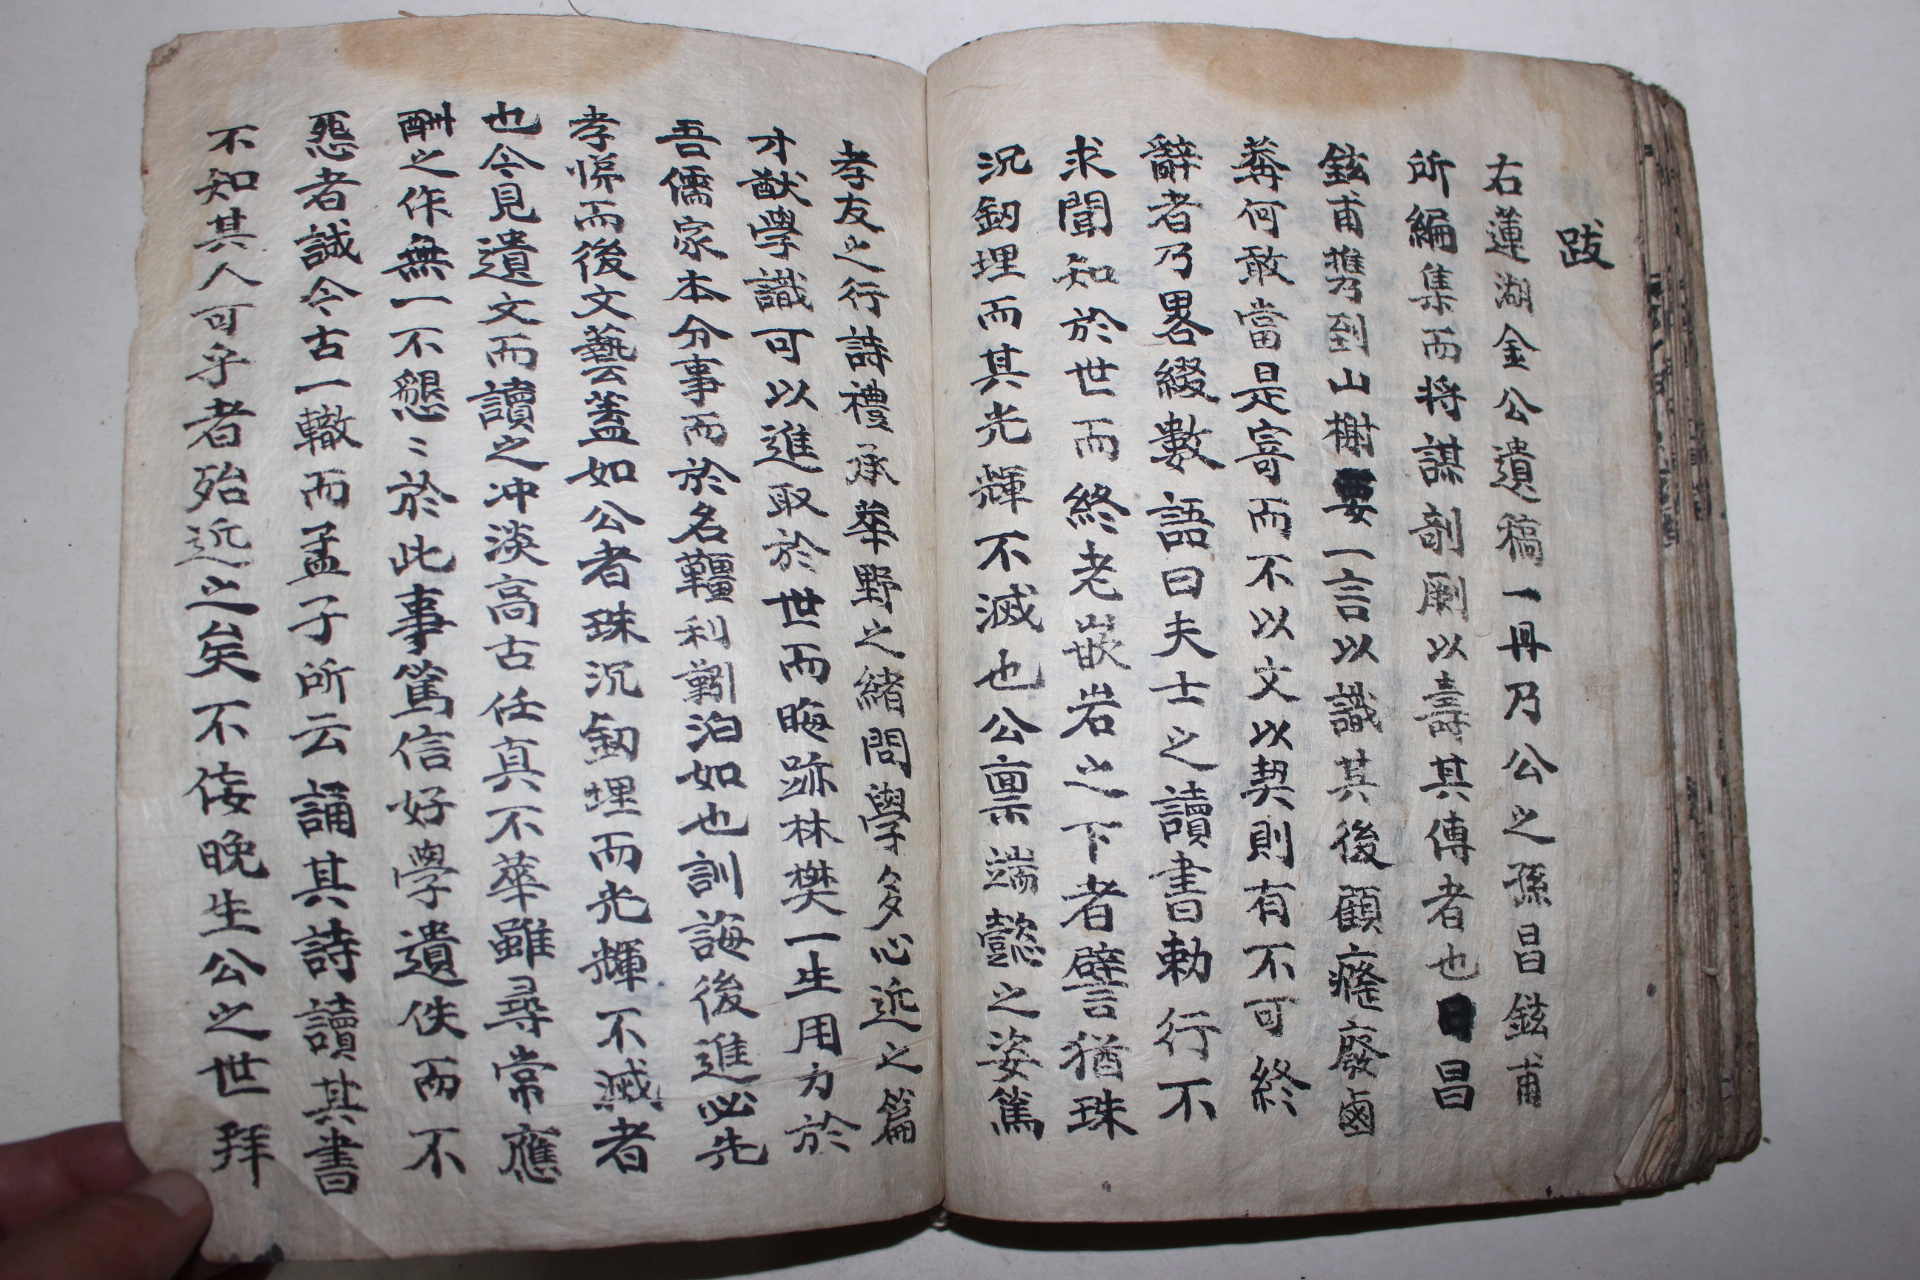 跋
右蓮湖金公遺稿一冊乃公之孫昌鉉甫
所編集而將謀剞劂以壽其傳者也日昌
鉉甫携到山榭要一言以識其後顧癃廢鹵
莽何敢當是寄而不以文以契則有不可終
辭者乃畧綴數語曰夫士之讀書勅行不
求聞知於世而終老嵌岩之下者譬猶珠
沉釰埋而其光輝不滅也公稟端懿之姿篤
孝友之行詩禮承華野之緖問學多心近之篇
才猷學識可以進取於世而晦跡林樊一生用力於
吾儒家本分事而於名韁利靷泊如也訓誨後進必先
孝悌而後文藝蓋如公者珠沉釰埋而光輝不滅者
也今見遺文而讀之冲淡高古任真不華雖尋常應
酬之作無一不懇〻於此事篤信好學遺佚而不
怨者誠今古一轍而孟子所云誦其詩讀其書
不知其人可乎者殆近之矣不佞晚生公之世拜